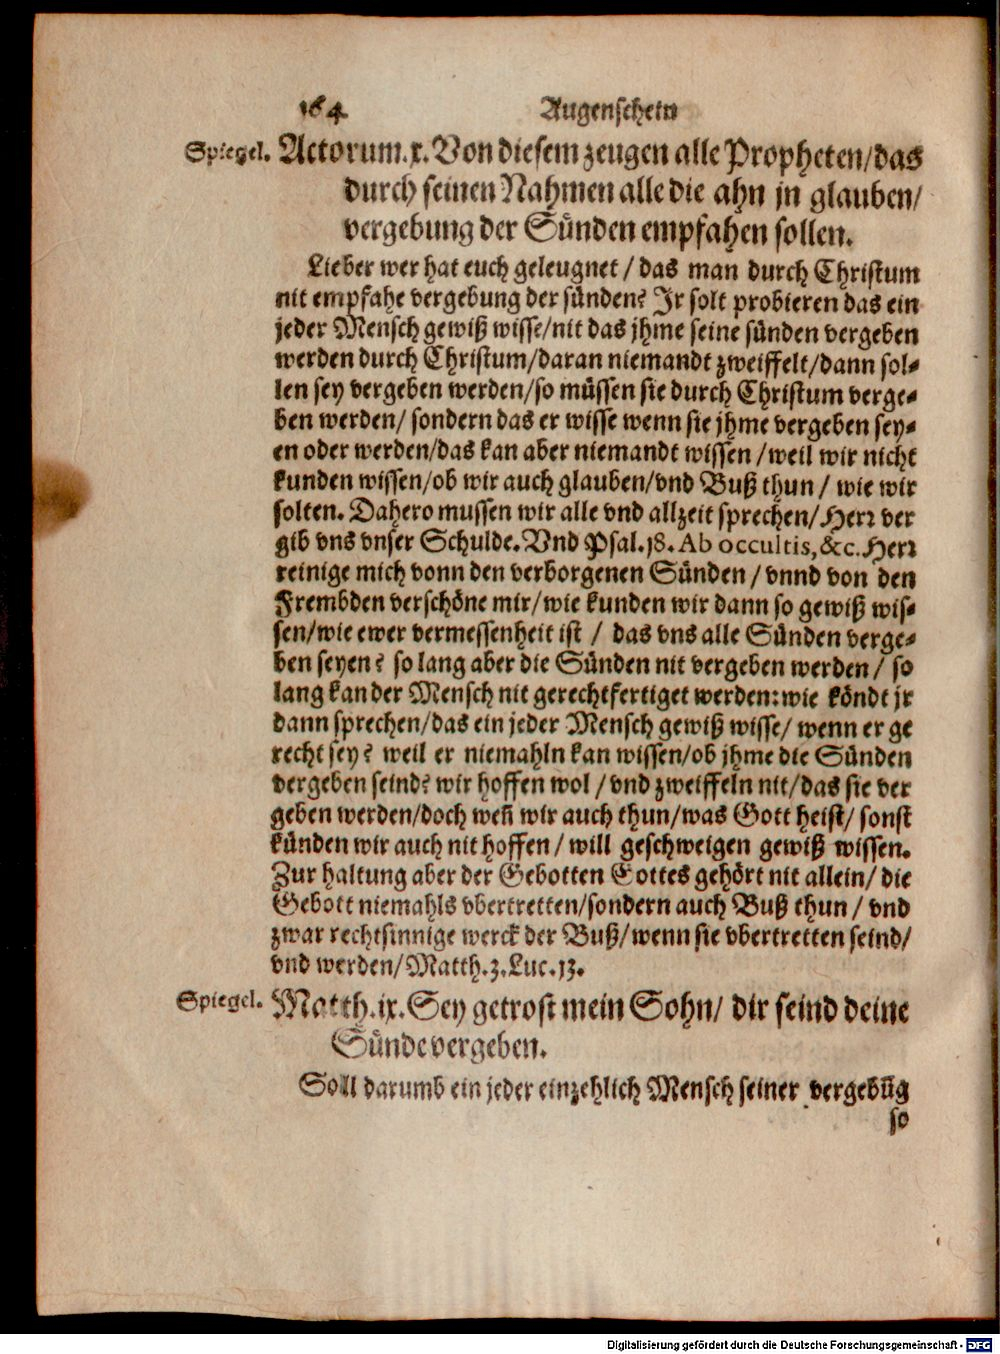 164 Augenschein
Spiegel. Actorum.x. Von diesem zeugen alle Propheten/das
durch seinen Nahmen alle die ahn jn glauben/
vergebung der Sünden empfahen sollen.
Lieber wer hat euch geleugnet / das man durch Christum
nit empfahe vergebung der sünden? Jr solt probieren das ein
jeder Mensch gewiß wisse/nit das jhme seine sünden vergeben
werden durch Christum/daran niemandt zweiffelt/dann sol-
len sey vergeben werden/so müssen sie durch Christum verge-
ben werden/ sondern das er wisse wenn sie jhme vergeben sey-
en oder werden/das kan aber niemandt wissen /weil wir nicht
kunden wissen/ob wir auch glauben/vnd Buß thun / wie wir
solten. Dahero mussen wir alle vnd allzeit sprechen/Herr ver
gib vns vnser Schulde. Vnd Psal.18. Ab occultis, &c. Herr
reinige mich vonn den verborgenen Sünden / vnnd von den
Frembden verschöne mir/wie kunden wir dann so gewiß wis-
sen/wie ewer vermessenheit ist / das vns alle Sünden verge-
ben seyen? so lang aber die Sünden nit vergeben werden/ so
lang kan der Mensch nit gerechtfertiget werden: wie köndt jr
dann sprechen/das ein jeder Mensch gewiß wisse/ wenn er ge
recht sey? weil er niemahln kan wissen/ob jhme die Sünden
vergeben seind? wir hoffen wol / vnd zweiffeln nit/das sie ver
geben werden/doch weñ wir auch thun/was Gott heist/ sonst
künden wir auch nit hoffen / will geschweigen gewiß wissen.
Zur haltung aber der Gebotten Gottes gehört nit allein/ die
Gebott niemahls vbertretten/sondern auch Buß thun / vnd
zwar rechtsinnige werck der Buß/wenn sie vbertretten seind/
vnd werden/Matth.3.Luc.13.
Spiegel. Matth.ix. Sey getrost mein Sohn/ dir seind deine
Sünde vergeben.
Soll darumb ein jeder einzehlich Mensch seiner vergebūg
so
Digitalisierung gefördert durch die Deutsche Forschungsgemeinschaft - DFG